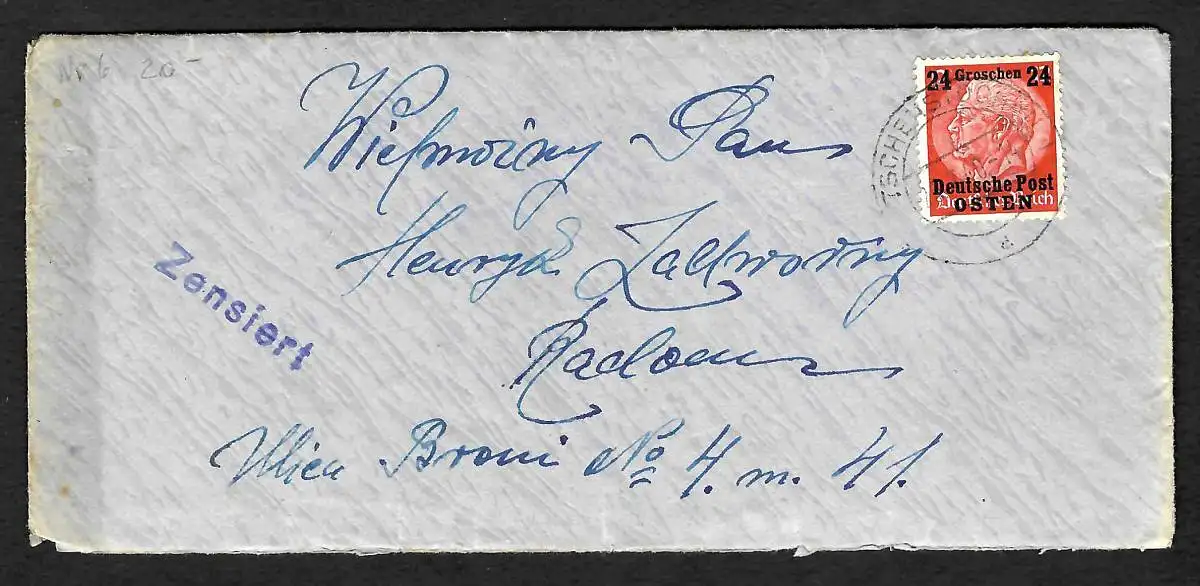 Nr 6 20-
24 Groschen 24
Deutsche Post
OSTEN
TSCHE
d
Wielmożny Pan
Henryk Zakrzewsky
Radom
Zensiert
Ulica Broni No 4. m. 41.